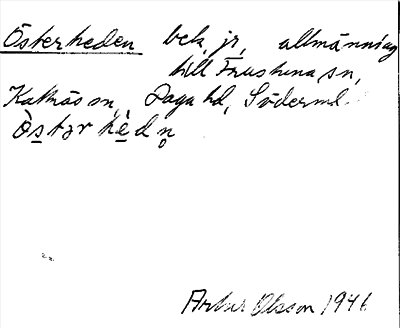 Österheden bek, jr, allmänning
till Frustuna sn,
Kattnäs sn, Daga hd, Söderml.
Ö̀s̲tər hè̲dn̥
Artur Olsson 1946